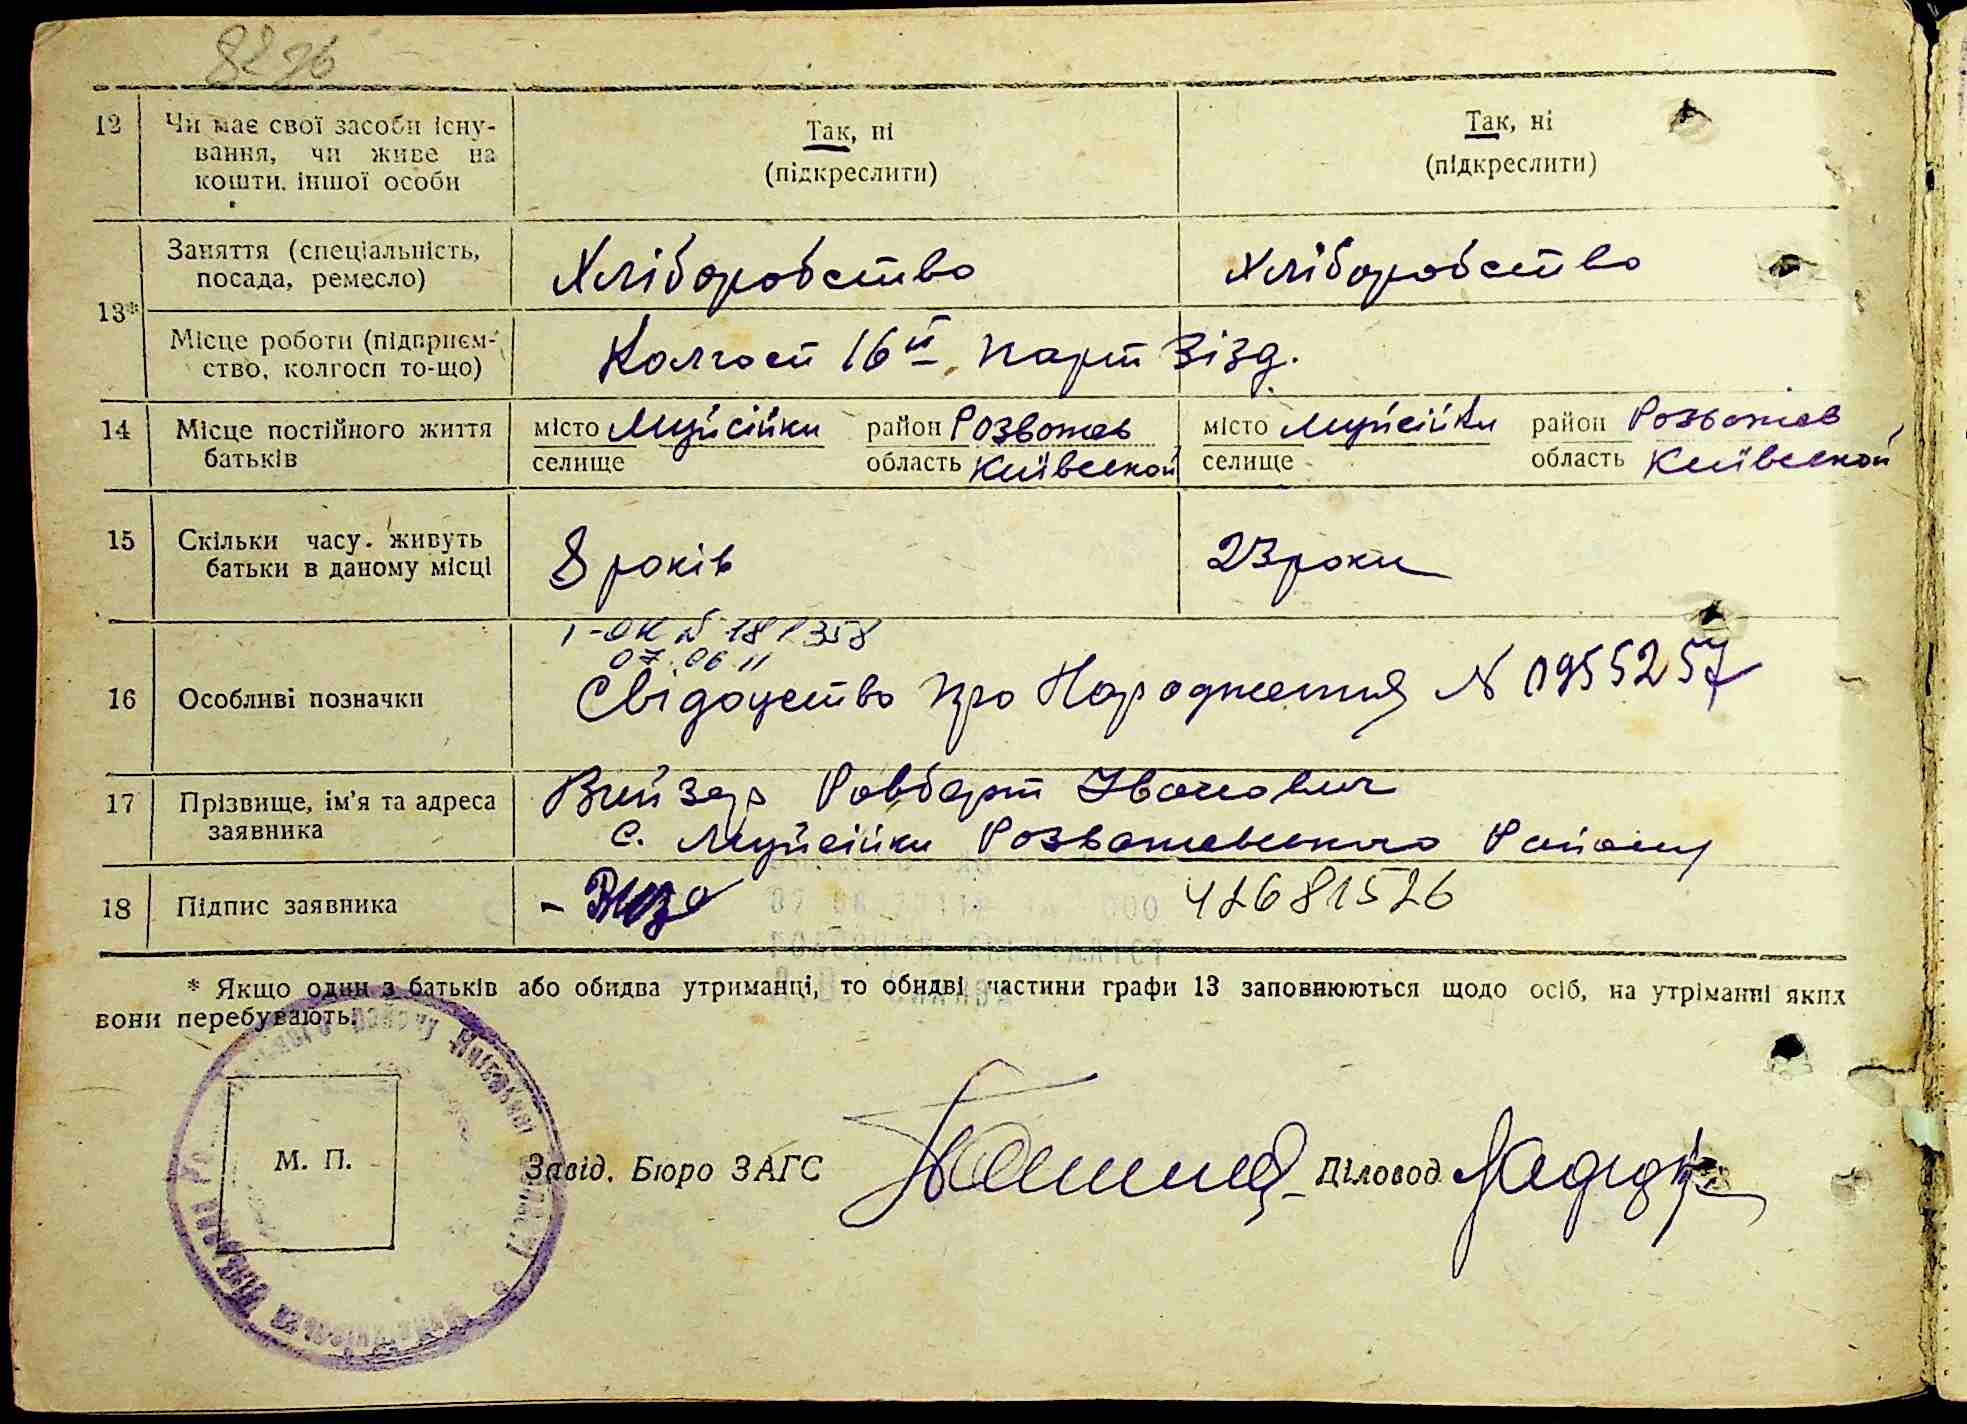 8296
12 Чи має свої засоби існу- Так, ні Так, ні
вання, чи живе на (підкреслити) (підкреслити)
кошти іншої особи
13* Заняття (спеціальність, Хліборобство Хліборобство
посада, ремесло)
Місце роботи (підприєм- Колгосп 16й Парт Зізд.
ство, колгосп то-що)
14 Місце постійного життя місто Муйсійки район Розважев місто Муйсійки район Розважев
батьків селище область Київской селище область Київской
15 Скільки часу живуть 8 років 23 роки
батьки в даному місці
І-ОК № 181358
07.06 11
16 Особливі позначки Свідоцтво про Народження № 0955257
17 Прізвище, ім'я та адреса Вийзер Іванович
заявника с. Муйсійки Розважевського Району
18 Підпис заявника 42681526
* Якщо один з батьків або обидва утриманці, то обидві частини графи 13 заповнюються щодо осіб, на утриманні яких
вони перебувають.
М. П.
Завід. Бюро ЗАГС Діловод